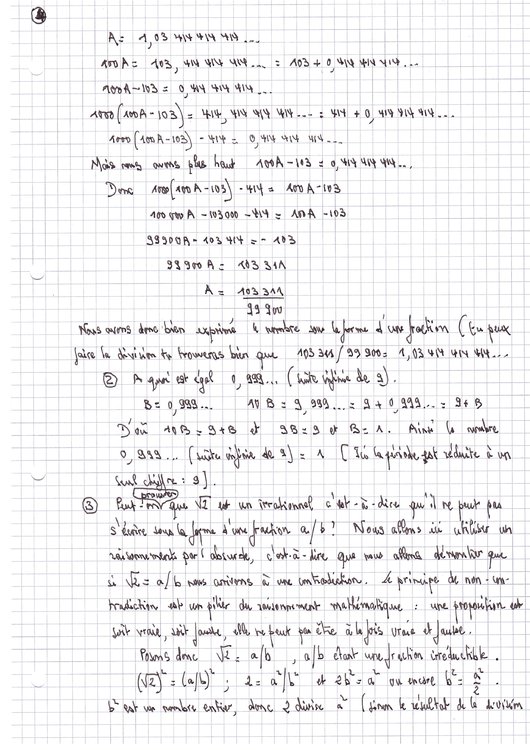 4
A = 1,03 414 414 414 ...
100A = 103, 414 414 414 ... = 103 + 0,414 414 414 ...
100A - 103 = 0,414 414 414 ...
1000(100A - 103) = 414, 414 414 414 ... = 414 + 0,414 414 414 ...
1000(100A - 103) - 414 = 0,414 414 414 ...
Mais nous avons plus haut 100A - 103 = 0,414 414 414 ...
Donc 1000(100A - 103) - 414 = 100A - 103
100 000A - 103000 - 414 = 100A - 103
99900A - 103 414 = - 103
99 900 A = 103 311
A = 103 311
99 900
Nous avons donc bien exprimé le nombre sous la forme d'une fraction (Tu peux
faire la division tu trouveras bien que 103 311 / 99 900 = 1,03 414 414 414 ...
② A quoi est égal 0,999... (suite infinie de 9).
B = 0,999... 10 B = 9,999... = 9 + 0,999... = 9+B
D'où 10B = 9+B et 9B = 9 et B = 1. Ainsi le nombre
0,999... (suite infinie de 9) = 1 [Ici la période est réduite à un
seul chiffre : 9].
prouver
③ Peut-on que √2 est un irrationnel c'est-à-dire qu'il ne peut pas
s'écrire sous la forme d'une fraction a/b ? Nous allons ici utiliser un
raisonnement par l'absurde, c'est-à-dire que nous allons démontrer que
si √2 = a/b nous arrivons à une contradiction. Le principe de non-con-
tradiction est un pilier du raisonnement mathématique : une proposition est
soit vraie, soit fausse, elle ne peut pas être à la fois vraie et fausse.
Posons donc √2 = a/b , a/b étant une fraction irréductible.
(√2)² = (a/b)² ; 2 = a²/b² et 2b² = a² ou encore b² = a²/2.
b² est un nombre entier, donc 2 divise a² (sinon le résultat de la division